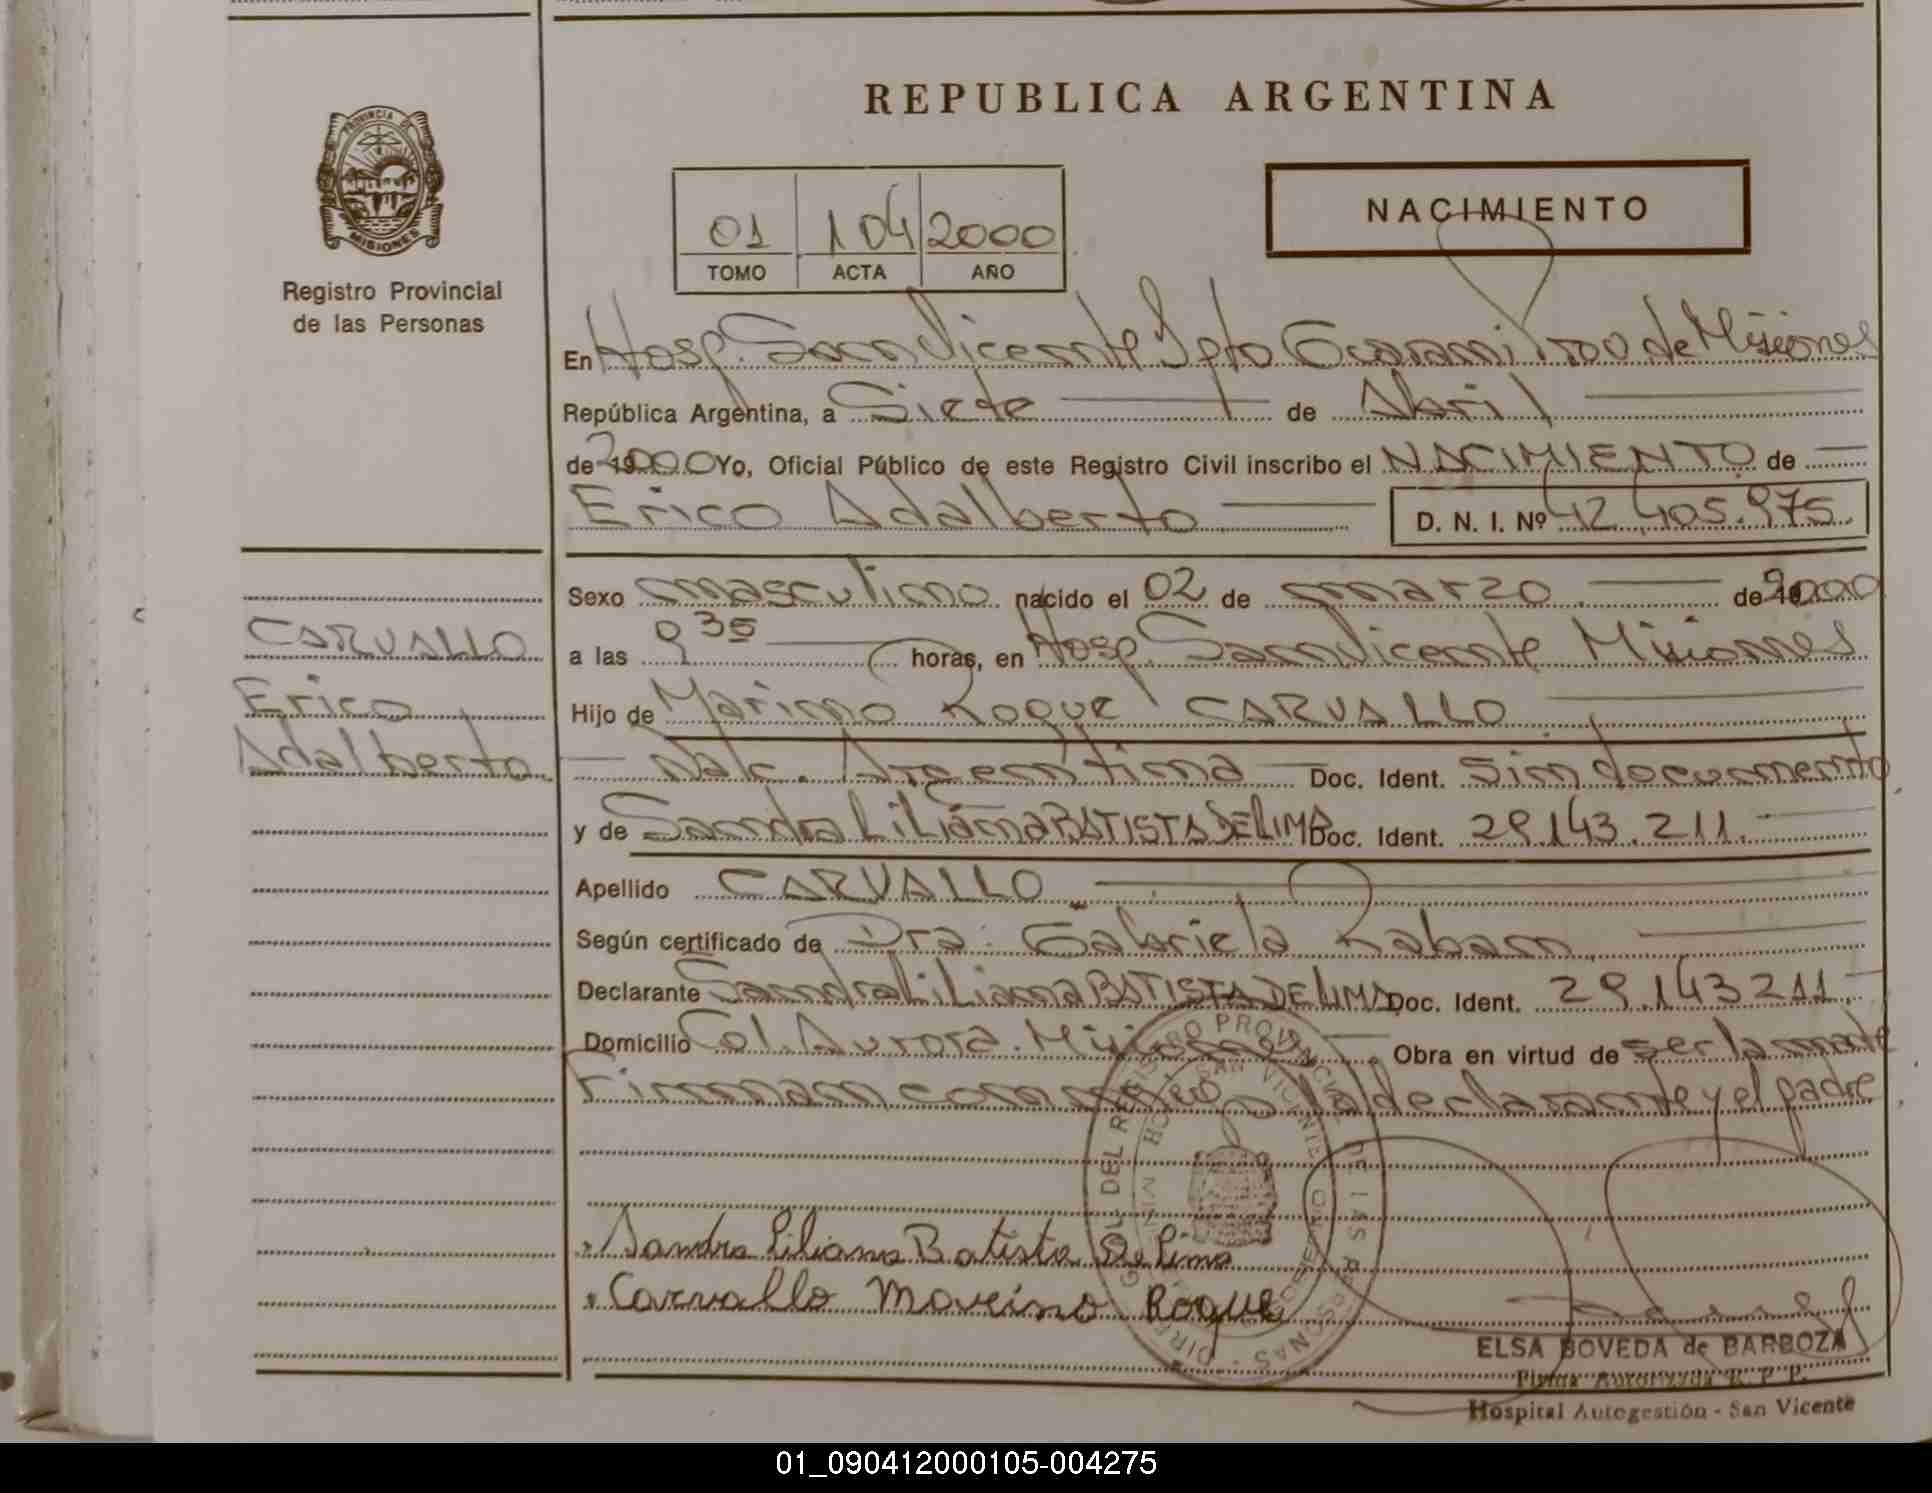 REPUBLICA ARGENTINA
PROVINCIA DE
MISIONES
Registro Provincial
de las Personas
01 104 2000
TOMO ACTA AÑO
NACIMIENTO
En Hosp. San Vicente Dpto Guarami de Misiones
República Argentina, a Siete de Abril
de 192000 Yo, Oficial Público de este Registro Civil inscribo el NACIMIENTO de
Erico Adalberto D. N. I. Nº 42.405.975.
Sexo masculino nacido el 02 de marzo de 2000
CARVALLO
Erico
Adalberto
a las 9 35 horas, en Hosp. San Vicente Misiones
Hijo de Marino Roque CARVALLO
Nac. Argentina Doc. Ident. Sin documento
y de Sandra Liliana BATISTA DE LIMA Doc. Ident. 29.143.211.
Apellido CARVALLO
Según certificado de Dra. Gabriela Raban
Declarante Sandra Liliana BATISTA DE LIMA Doc. Ident. 29.143211.
Domicilio Col. Aurora. Misiones Obra en virtud de ser la madre
Firman conmigo la declarante y el padre
DEL REGISTRO PROVINCIAL DE LAS PERSONAS
SAN VICENTE
Sandra Liliana Batista De Lima
Carvallo Marino Roque
ELSA BOVEDA de BARBOZA
Firma Autorizada R. P. P.
Hospital Autogestión - San Vicente
01_090412000105-004275